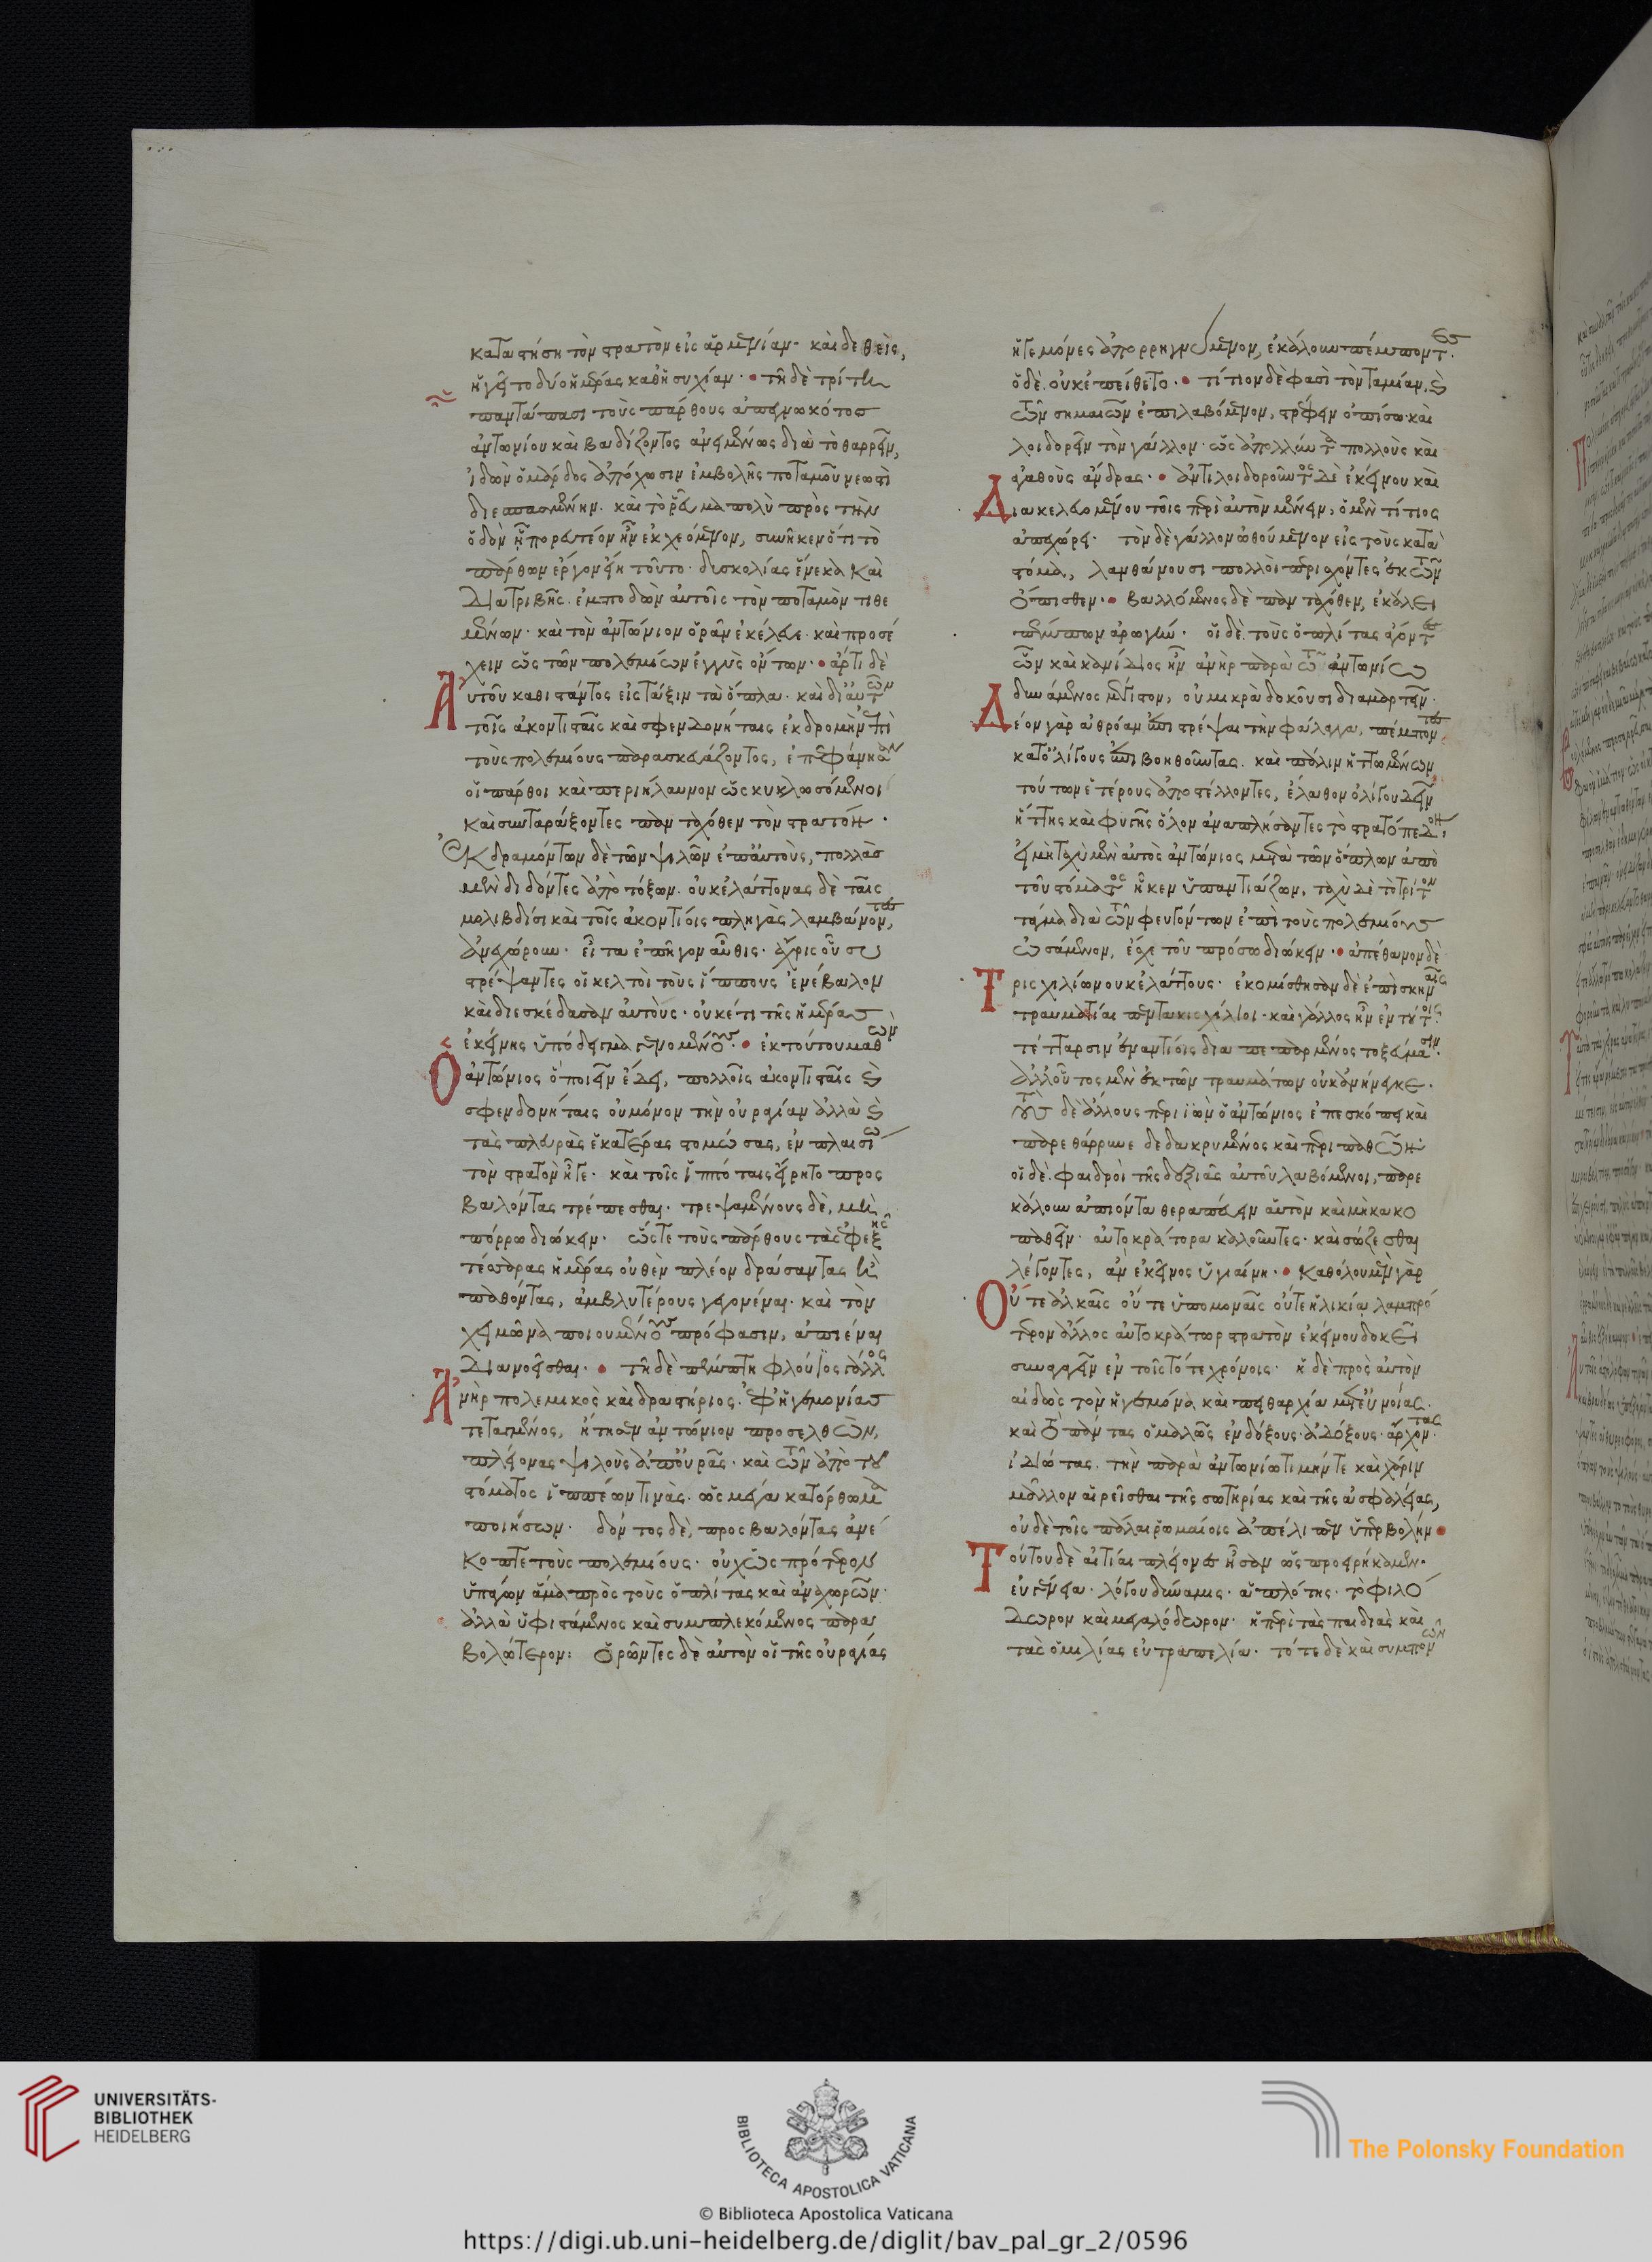 καταστήση τὸν στρατὸν εἰς ἀρμενίαν· καὶ δεθεὶς,
ἡγεῖτο δύο ἡμέρας καθ' ἡσυχίαν· τῆ δὲ τρίτη
παντάπασι τοὺς πάρθους ἀπεγνωκότος
ἀντωνίου καὶ βαδίζοντος ἀνειμένως διὰ τὸ θαρρεῖν,
ἰδὼν ὁ μάρδος ἀπόχωσιν ἐμβολῆς ποταμοῦ νεωστὶ
διεσπασμένην. καὶ τὸ ῥεῦμα πολὺ πρὸς τὴν
ὁδὸν ἧ πορευτέον ἦν ἐκχεόμενον, συνῆκεν ὅτι τῶ
πάρθων ἔργον εἴη τοῦτο. δυσκολίας ἕνεκα καὶ
διατριβῆς. ἐμποδὼν αὐτοῖς τὸν ποταμὸν τιθε
μένων· καὶ τὸν ἀντώνιον ὁρᾶν ἐκέλευε. καὶ προσέ
χειν ὡς τῶν πολεμίων ἐγγὺς ὄντων· ἄρτι δὲ
Αὐτοῦ καθιστάντος εἰς τάξιν τὰ ὅπλα· καὶ δι' αὐτῶν
τοῖς ἀκοντισταῖς καὶ σφενδονήταις ἐκδρομὴν ἐπὶ
τοὺς πολεμίους παρασκευάζοντος, ἐπεφάνησαν
οἱ πάρθοι καὶ περιήλαυνον ὡς κυκλωσόμενοι
καὶ συνταράξοντες πανταχόθεν τὸν στρατόν·
Ἐκδραμόντων δὲ τῶν ψιλῶν ἐπ' αὐτοὺς, πολλὰς
μὲν διδόντες ἀπὸ τόξων. οὐκ ἐλάττονας δὲ ταῖς
μολιβδίσι καὶ τοῖς ἀκοντίοις πληγὰς λαμβάνοντες,
ἀνεχώρουν. εἶτα ἐπῆγον αὖθις. ἄχρις οὗ συ
στρέψαντες οἱ κελτοὶ τοὺς ἵππους ἐνέβαλον
καὶ διεσκέδασαν αὐτοὺς· οὐκέτι τῆς ἡμέρας
ἐκείνης ὑπόδειγμα γενομένους· ἐκ τούτου μαθὼν
Ὁ ἀντώνιος ὃ ποιεῖν ἔδει, πολλοῖς ἀκοντισταῖς καὶ
σφενδονήταις οὐ μόνον τὴν οὐραγίαν ἀλλὰ καὶ
τὰς πλευρὰς ἑκατέρας στομώσας, ἐν πλαισίω
τὸν στρατὸν ἦγε· καὶ τοῖς ἱππόταις εἴρητο προς
βαλόντας τρέπεσθαι. τρεψαμένους δὲ, μὴ
πόρρω διώκειν· ὥστε τοὺς πάρθους τὰς ἐφεξῆς
τέσσαρας ἡμέρας οὐθὲν πλέον δράσαντας ἢ
παθόντας, ἀμβλυτέρους γεγονέναι. καὶ τὸν
χειμῶνα ποιουμένους πρόφασιν, ἀπιέναι
διανοεῖσθαι· τῆ δὲ πέμπτη φλαούϊος γάλλος
Ἀνὴρ πολεμικὸς καὶ δραστήριος. ἐφ' ἡγεμονίας
τεταγμένος, ἤτησεν ἀντώνιον προσελθὼν,
πλείονας ψιλοὺς ἀπ' οὐρᾶς· καὶ τῶν ἀπὸ τοῦ
στόματος ἱππέων τινὰς. ὡς μέγα κατόρθωμα
ποιήσων. δόντος δὲ, προσβαλόντας ἀνέ
κοπτε τοὺς πολεμίους· οὐχ ὡς πρότερον
ὑπάγων ἅμα πρὸς τοὺς ὁπλίτας καὶ ἀναχωρῶν·
ἀλλὰ ὑφιστάμενος καὶ συμπλεκόμενος παρα
βολώτερον: Ὁρῶντες δὲ αὐτὸν οἱ τῆς οὐραγίας
ἡγεμόνες ἀπορρηγνύμενον, ἐκάλουν πέμποντες.
ὁ δὲ. οὐκ ἐπείθετο. τίτιον δὲ φασὶ τὸν ταμίαν, καὶ
τῶν σημαιῶν ἐπιλαβόμενον, στρέφειν ὀπίσω· καὶ
λοιδορεῖν τὸν γάλλον· ὡς ἀπολλύντα πολλοὺς καὶ
ἀγαθοὺς ἄνδρας· ἀντιλοιδοροῦντος δὲ ἐκείνου καὶ
Διακελευομένου τοῖς περὶ αὐτὸν μένειν, ὁ μὲν τίτιος
ἀπεχώρει· τὸν δὲ γάλλον ὠθούμενον εἰς τοὺς κατὰ
στόμα, λανθάνουσι πολλοὶ περισχόντες ἐκ τῶν
ὄπισθεν· βαλλόμενος δὲ πανταχόθεν, ἐκάλει
πέμπων ἀρωγὴν· οἱ δὲ. τοὺς ὁπλίτας ἄγοντες
ὧν καὶ κανίδιος ἦν ἀνὴρ παρὰ τῶ ἀντωνίω
δυνάμενος μέγιστον, οὐ μικρὰ δοκοῦσι διαμαρτεῖν·
Δέον γὰρ ἀθρόαν ἐπιστρέψαι τὴν φάλαγγα, πέμποντες
κατ' ὀλίγους ἐπιβοηθοῦντας. καὶ πάλιν ἡττωμένων
τούτων ἑτέρους ἀποστέλλοντες, ἔλαθον ὀλίγου δεῖν
ἥττης καὶ φυγῆς ὅλον ἀναπλήσαντες τὸ στρατόπεδον,
εἰ μὴ ταχὺ μὲν αὐτὸς ἀντώνιος μετὰ τῶν ὅπλων ἀπὸ
τοῦ στόματος ἧκεν ὑπαντιάζων, ταχὺ δὲ τὸ τρίτον
τάγμα διὰ τῶν φευγόντων ἐπὶ τοὺς πολεμίους
ὠσάμενον, ἔσχε τοῦ πρόσω διώκειν· ἀπέθανον δὲ
Τρισχιλίων οὐκ ἐλάττους. ἐκομίσθησαν δὲ ἐπὶ σκηναῖς
τραυματίαι πεντακισχίλιοι· καὶ γάλλος ἦν ἐν τούτοις·
τέτταρσιν ἐναντίοις διαπεπαρμένος τοξεύμασιν·
ἀλλ' οὗτος μὲν ἐκ τῶν τραυμάτων οὐκ ἀνήνεγκε.
τοὺς δὲ ἄλλους περιϊὼν ὁ ἀντώνιος ἐπεσκόπει καὶ
παρεθάρρυνε δεδακρυμένος καὶ περιπαθῶν·
οἱ δὲ. φαιδροὶ τῆς δεξιᾶς αὐτοῦ λαβόμενοι, παρε
κάλουν ἀπιόντα θεραπεύειν αὑτὸν καὶ μὴ κακο
παθεῖν· αὐτοκράτορα καλοῦντες. καὶ σώζεσθαι
λέγοντες, ἂν ἐκεῖνος ὑγιαίνη· καθόλου μὲν γὰρ
Οὔτε ἀλκαῖς οὔτε ὑπομοναῖς οὔτε ἡλικία λαμπρό
τερον ἄλλος αὐτοκράτωρ στρατὸν ἐκείνου δοκεῖ
συναγαγεῖν ἐν τοῖς τότε χρόνοις· ἡ δὲ πρὸς αὐτὸν
αἰδὼς τὸν ἡγεμόνα καὶ πειθαρχία μετ' εὐνοίας.
καὶ τὸ πάντας ὁμαλῶς ἐνδόξους· ἀδόξους· ἄρχοντας·
ἰδιώτας. τὴν παρὰ ἀντωνίω τιμήν τε καὶ χάριν
μᾶλλον αἱρεῖσθαι τῆς σωτηρίας καὶ τῆς ἀσφαλείας,
οὐδὲ τοῖς πάλαι ῥωμαίοις ἀπέλιπεν ὑπερβολήν
Τούτου δὲ αἰτίαι πλείονες ἦσαν ὡς προειρήκαμεν·
εὐγένεια· λόγου δύναμις· ἁπλότης· τὸ φιλό
δωρον καὶ μεγαλόδωρον· ἡ περὶ τὰς παιδιὰς καὶ
τὰς ὁμιλίας εὐτραπελία· τότε δὲ καὶ συμπονῶν
UNIVERSITÄTS-
BIBLIOTHEK
HEIDELBERG
BIBLIOTECA APOSTOLICA VATICANA
© Biblioteca Apostolica Vaticana
The Polonsky Foundation
https://digi.ub.uni-heidelberg.de/diglit/bav_pal_gr_2/0596